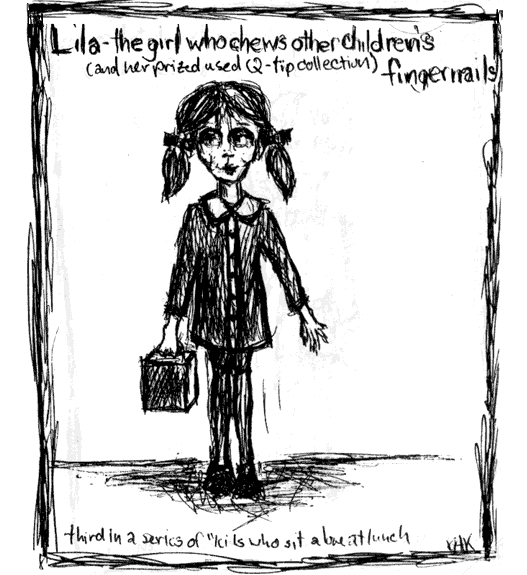 Lila - the girl who chews other children's
(and her prized used Q-tip collection) fingernails
third in a series of "kids who sit alone at lunch
KHK